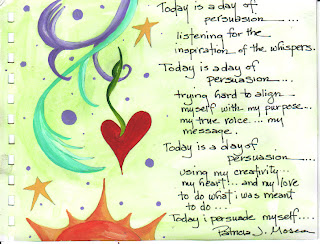 Today is a day of
persuasion....
listening for the
inspiration of the whispers.
Today is a day of
persuasion....
trying hard to align
myself with my purpose...
my true voice... my
message.
Today is a day of
persuasion....
using my creativity...
my heart!... and my love
to do what i was meant
to do...
Today i persuade myself....
Patricia J. Mosca